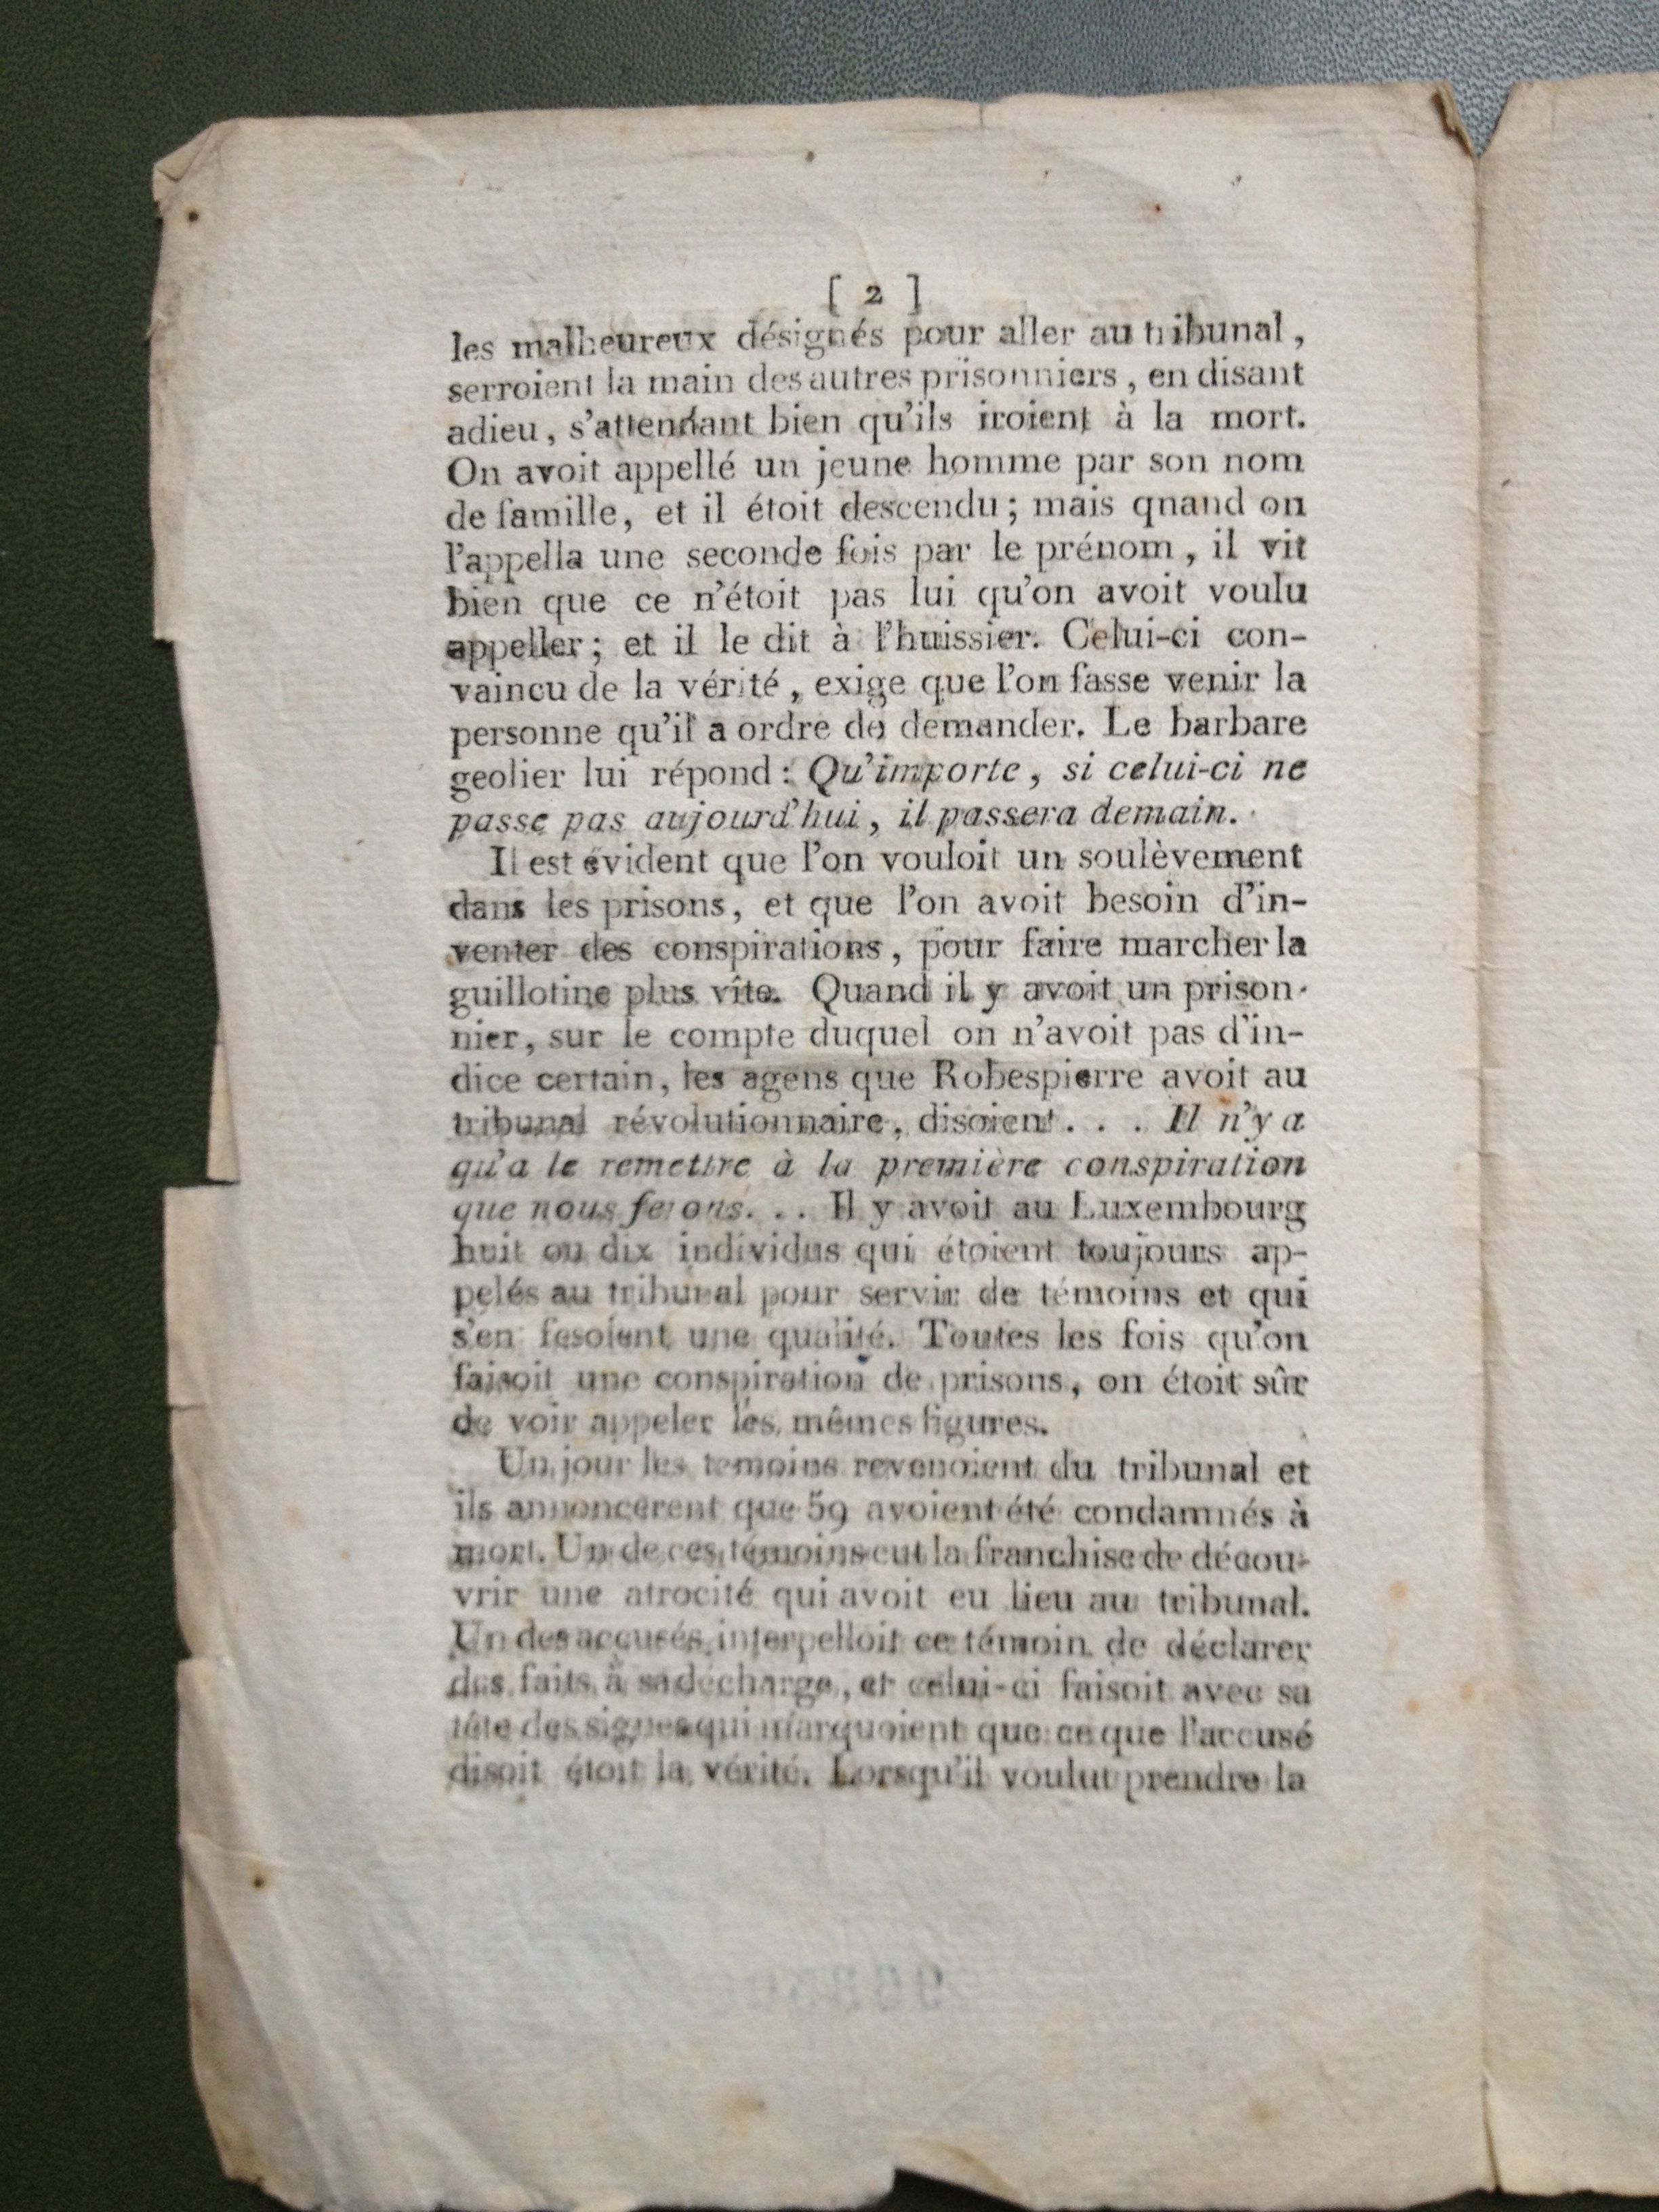 [ 2 ]
les malheureux désignés pour aller au tribunal,
serroient la main des autres prisonniers, en disant
adieu, s'attendant bien qu'ils iroient à la mort.
On avoit appellé un jeune homme par son nom
de famille, et il étoit descendu; mais qnand on
l'appella une seconde fois par le prénom, il vit
bien que ce n'étoit pas lui qu'on avoit voulu
appeller; et il le dit à l'huissier. Celui-ci con-
vaincu de la vérité, exige que l'on fasse venir la
personne qu'il a ordre de demander. Le barbare
geolier lui répond: Qu'importe, si celui-ci ne
passe pas aujourd'hui, il passera demain.
Il est évident que l'on vouloit un soulèvement
dans les prisons, et que l'on avoit besoin d'in-
venter des conspirations, pour faire marcher la
guillotine plus vîte. Quand il y avoit un prison-
nier, sur le compte duquel on n'avoit pas d'in-
dice certain, les agens que Robespierre avoit au
tribunal révolutionnaire, disoient . . . Il n'y a
qu'a le remettre à la première conspiration
que nous ferons. . . Il y avoit au Luxembourg
huit ou dix individus qui étoient toujours ap-
pelés au tribunal pour servir de témoins et qui
s'en fesoient une qualité. Toutes les fois qu'on
faisoit une conspiration de prisons, on étoit sûr
de voir appeler les mêmes figures.
Un jour les temoins revenoient du tribunal et
ils annoncèrent que 59 avoient été condamnés à
mort. Un de ces témoins eut la franchise de décou-
vrir une atrocité qui avoit eu lieu au tribunal.
Un des accusés interpelloit ce témoin de déclarer
des faits à sa décharge, et celui-ci faisoit avec sa
tête des signes qui marquoient que ce que l'accusé
disoit étoit la vérité. Lorsqu'il voulut prendre la